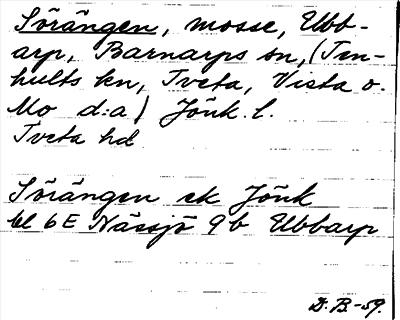 Sörängen, mosse, Ubb-
arp, Barnarps sn, (Ten-
hults kn, Tveta, Vista o.
Mo d:a) Jönk. l.
Tveta hd
Sörängen ek Jönk
bl 6E Nässjö 9 b Ubbarp
D. B.-59.